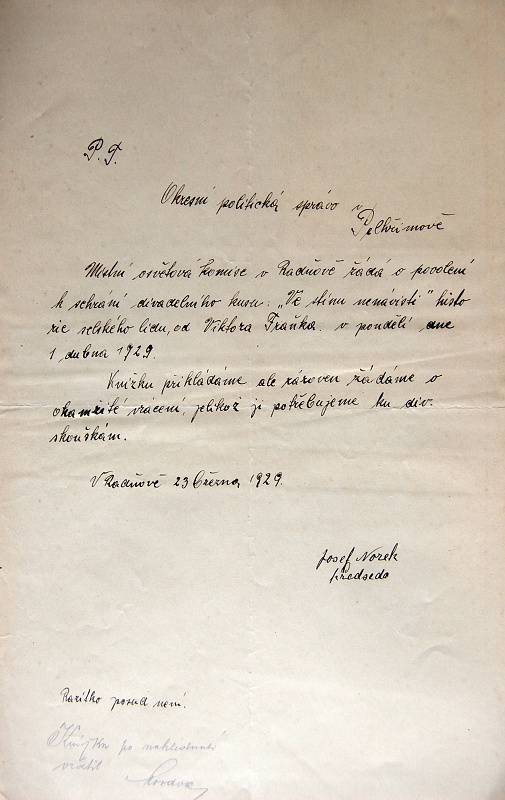 P. T.
Okresní politická správo v
Pelhřimově
Místní osvětová komise v Radňově žádá o povolení
k sehrání divadelního kusu: „Ve stínu nenávisti" histo
rie selského lidu, od Viktora Fraňka. v pondělí dne
1 dubna 1929.
Knížku přikládáme ale zároven žádáme o
okamžité vrácení, jelikož ji potřebujeme ku div.
skouškám.
V Radňově 23 března 1929.
Josef Norek
předseda
Razítko posud není.
Knížka po nahlédnutí
vrátil